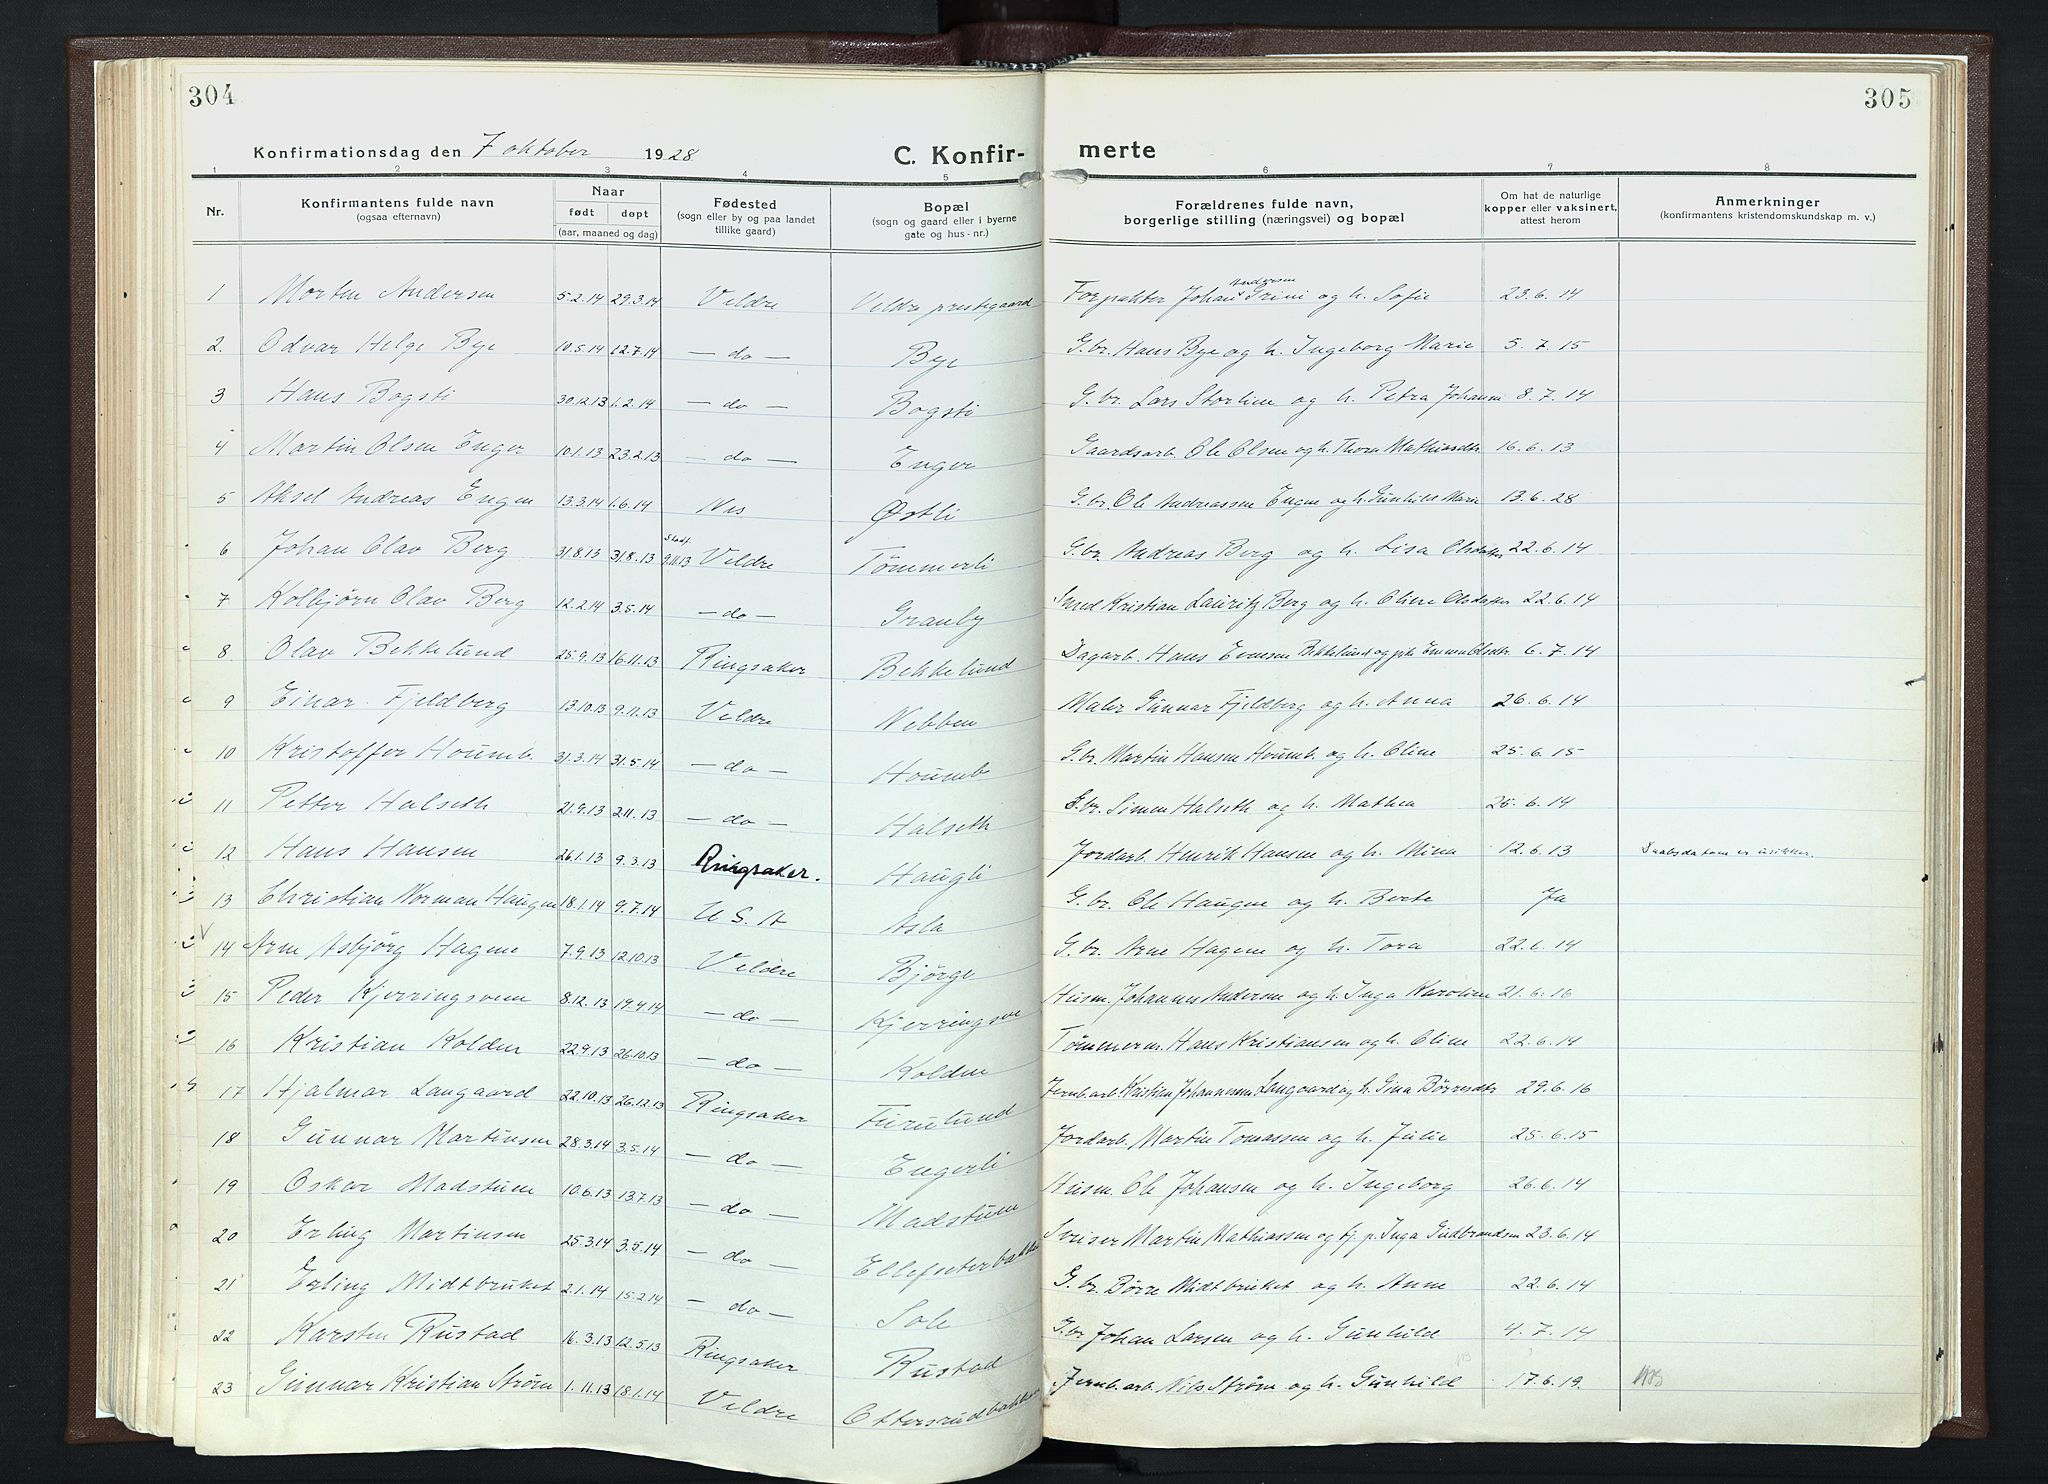 304
305
Konfirmationsdag den 7 oktober 1928
C. Konfir- merte
1 2 3 4 5 6 7 8
Nr.
Konfirmantens fulde navn
(ogsaa efternavn)
Naar
født døpt
(aar, maaned og dag)
Fødested
(sogn eller by og paa landet
tillike gaard)
Bopæl
(sogn og gaard eller i byerne
gate og hus-nr.)
Forældrenes fulde navn,
borgerlige stilling (næringsvei) og bopæl
Om hat de naturlige
kopper eller vaksinert,
attest herom
Anmerkninger
(konfirmantens kristendomskundskap m. v.)
1 Morten Andersen 5.2.14 29.3.14 Veldre Veldre prestegaard Forpakter Johan Andersen Grini og h. Sofie 23.6.14
2. Odvar Helge Bye 10.5.14 12.7.14 — do — Bye G.br. Hans Bye og h. Ingeborg Marie 5.7.15
3 Hans Bogsti 30.12.13 1.2.14 — do — Bogsti G.br. Lars Storlien og h. Petra Johansen 8.7.14
4 Martin Olsen Enger 10.1.13 23.2.13 — do — Enger Gaardsarb. Ole Olsen og h. Thora Mathiasdtr. 16.6.13
5 Aksel Andreas Engen 13.3.14 1.6.14 Nes Østli G.br. Ole Andreassen Engen og h. Gunhild Marie 13.6.28
6 Johan Olav Berg 31.8.13 31.8.13 Stadf. 9.11.13 Veldre Tømmerli G.br. Andreas Berg og h. Lisa Olsdatter 22.6.14
7 Kolbjørn Olav Berg 12.2.14 3.5.14 — do — Granby Kristian Lauritz Berg og h. Oline Olsdatter 22.6.14
8 Olav Bekkelund 25.9.13 16.11.13 Ringsaker Bekkelund Dagarb. Hans Evensen Bekkelund og Emma Olsdtr. 6.7.14
9 Einar Fjeldberg 13.10.13 9.11.13 Veldre Nebben Maler Gunnar Fjeldberg og h. Anna 26.6.14
10 Kristoffer Houmb. 31.3.14 31.5.14 — do — Houmb G.br. Martin Hansen Houmb. og h. Oline 25.6.15
11 Petter Halseth 21.9.13 2.11.13 — do — Halseth G.br. Simen Halseth og h. Mathea 25.6.14
12 Hans Hansen 26.1.13 9.3.13 Ringsaker. Haugli Jordarb. Henrik Hansen og h. Mina 12.6.13 Daabsdatoen er usikker.
13 Christian Norman Haugen 18.1.14 9.7.14 U S. A Asla G.br. Ole Haugen og h. Berte Ja
14 Arne Asbjørg Hagene 7.9.13 12.10.13 Veldre Bjørge G.br. Arne Hagene og h. Tora 22.6.14
15 Peder Kjerringsveen 8.12.13 19.4.14 — do — Kjerringsve Husm. Johannes Andersen og h. Inga Karoline 21.6.16
16 Kristian Kolden 22.9.13 26.10.13 — do — Kolden Tømmerm. Hans Kristiansen og h. Oline 22.6.14
17 Hjalmar Langaard 22.10.13 26.12.13 Ringsaker Furulund Jernb.arb. Kristian Johannessen Langaard og h. Gina Børresdtr 29.6.16
18 Gunnar Martinsen 28.3.14 3.5.14 — do — Engerli Jordarb. Martin Tomassen og h. Julie 25.6.15
19 Oskar Madstuen 10.6.13 13.7.13 — do — Madstuen Husm. Ole Johansen og h. Ingeborg 26.6.14
20 Erling Martinsen 25.3.14 3.5.14 — do — Ellefseterbakken Sveiser Martin Mathiassen og fj. p. Inga Gudbrandsen 23.6.14
21 Erling Midtbruket 2.1.14 15.2.14 — do — Sole G.br. Børre Midtbruket og h. Anne 22.6.14
22 Karsten Rustad 16.3.13 12.5.13 Ringsaker Rustad G.br Johan Larsen og h. Gunhild 4.7.14
23 Gunnar Kristian Strøm 1.11.13 18.1.14 Veldre Ottersrudbakken Jernb.arb. Nils Strøm og h. Gunhild 17.6.19